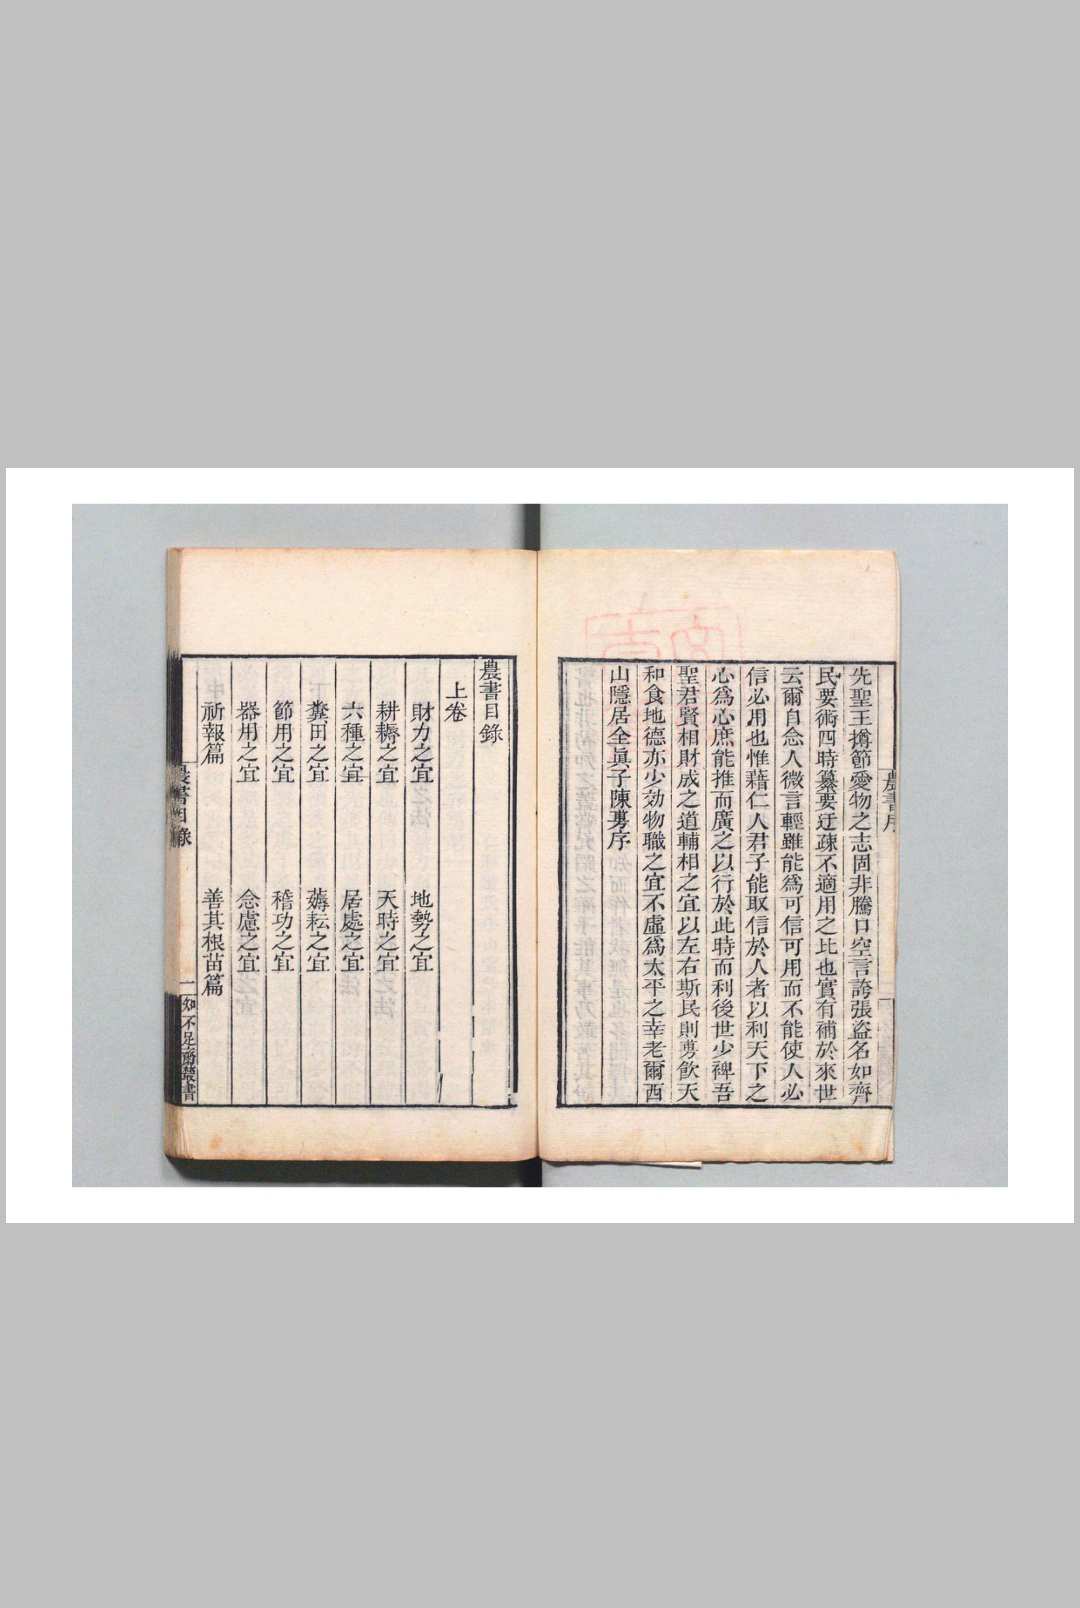 先聖王撙節愛物之志固非騰口空言誇張盜名如齊
民要術四時纂要迂疎不適用之比也實有補於來世
云爾自念人微言輕雖能爲可信可用而不能使人必
信必用也惟藉仁人君子能取信於人者以利天下之
心爲心庶能推而廣之以行於此時而利後世少裨吾
聖君賢相財成之道輔相之宜以左右斯民則旉飲天
和食地德亦少効物職之宜不虛爲太平之幸老爾西
山隱居全眞子陳旉序
農書序
農書目錄
上卷
財力之宜 地勢之宜
耕耨之宜 天時之宜
六種之宜 居處之宜
糞田之宜 薅耘之宜
節用之宜 稽功之宜
器用之宜 念慮之宜
祈報篇 善其根苗篇
農書目錄 一 知不足齋叢書